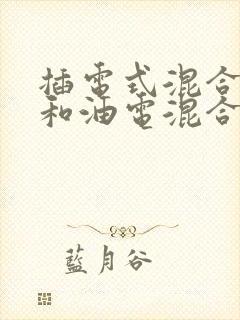 插電式混合
和油電混合
藍月谷